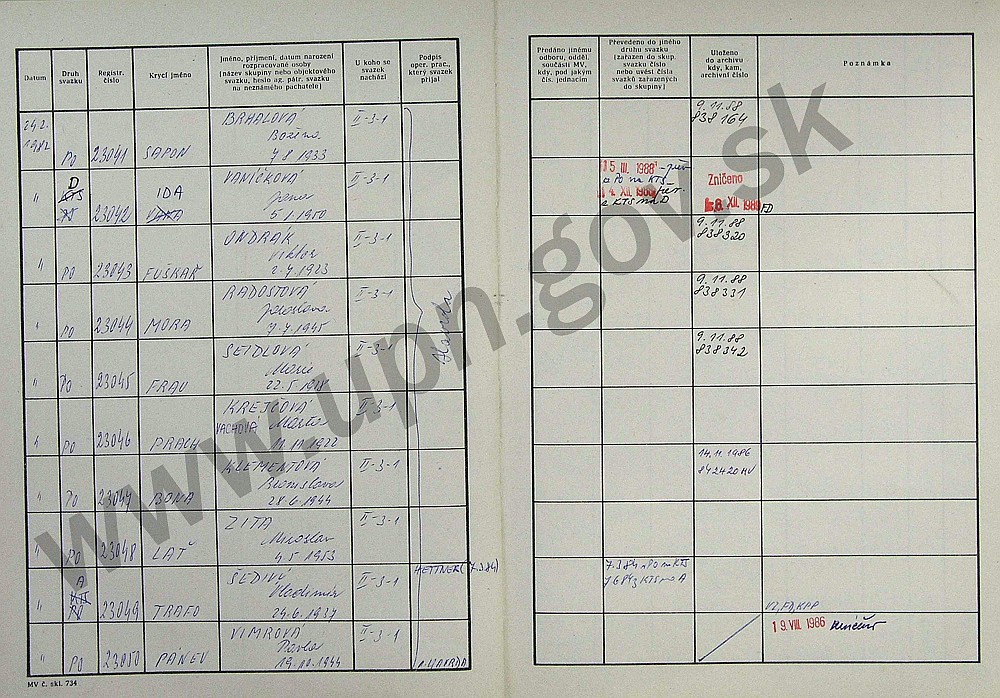 Datum
Druh svazku
Registr. číslo
Krycí jméno
Jméno, příjmení, datum narození
rozpracované osoby
(název skupiny nebo objektového
svazku, heslo ag. pátr. svazku
na neznámého pachatele)
U koho se
svazek
nachází
Podpis
oper. prac.,
který svazek
přijal
Předáno jinému
odboru, odděl.
součásti MV,
kdy, pod jakým
čís. jednacím
Převedeno do jiného
druhu svazku
(zařazen do skup.
svazku číslo
nebo uvést čísla
svazků zařazených
do skupiny)
Uloženo
do archivu
kdy, kam,
archivní číslo
Poznámka
24.2.
1982 PO 23041 SAPON
BRHALOVÁ
Božena
7.8.1933
II-3-1
9.11.88
838164
" D KTS 23042 IDA
VANÍČKOVÁ
Jana
5.1.1950
II-3-1
15. III. 1988
z PO na KTS
14. XII. 1988
z KTS na D
Zničeno
XII. 1988 FD
" PO 23043 FUŠKAŘ
ONDRÁK
Viktor
2.7.1923
II-3-1
9.11.88
838320
" PO 23044 MORA
RADOSTOVÁ
Jaroslava
7.7.1945
II-3-1
9.11.88
838331
" PO 23045 FRAU
SEIDLOVÁ
Marie
22.5.1918
II-3-1
Havrda
9.11.88
838342
" PO 23046 PRACH
KREJČOVÁ
VACHOVÁ Marta
11.11.1922
II-3-1
" PO 23047 BONA
KLEMENTOVÁ
Bronislava
28.6.1944
II-3-1
14.11.1986
842420 HV
" PO 23048 LAŤ
ZITA
Miroslav
4.5.1953
II-3-1
" A KTS PO 23049 TRAFO
ŠEDIVÝ
Vladimír
24.6.1937
II-3-1
HETTNER (7.3.84)
7.3.84 z PO na KTS
7.6.84 z KTS na A
VZ, FD, KPP
" PO 23050 PÁNEV
VIMROVÁ
Pavla
19.10.1944
II-3-1
HAVRDA
19. VIII. 1986
MV č. skl. 734
www.upn.gov.sk